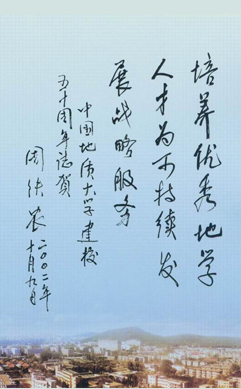 培养优秀地学
人才为可持续发
展战略服务
中国地质大学建校
五十周年志贺
二〇〇二年
十月九日